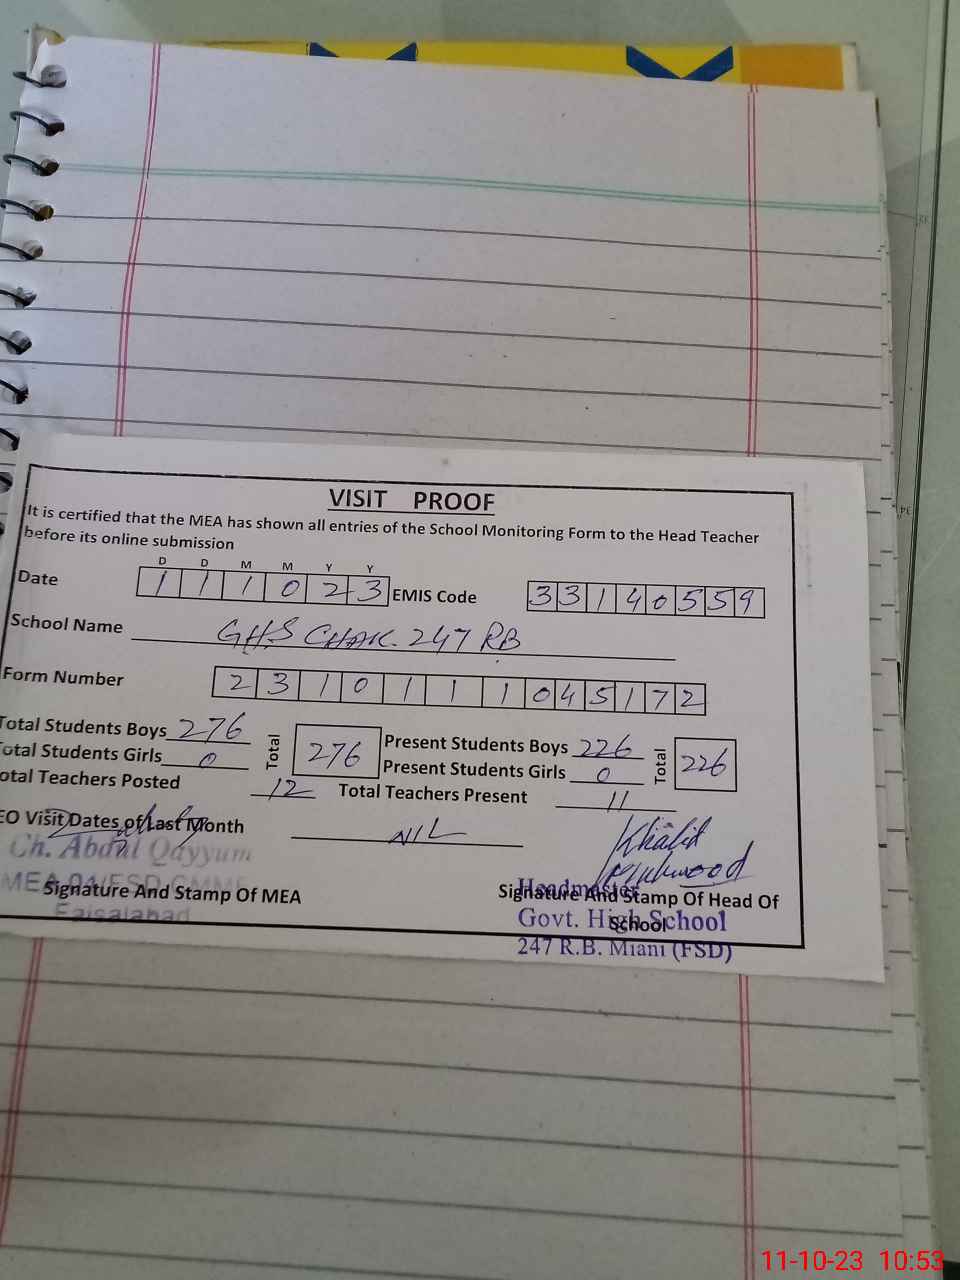 VISIT PROOF
It is certified that the MEA has shown all entries of the School Monitoring Form to the Head Teacher
before its online submission
D D M M Y Y
Date 1 1 1 0 2 3 EMIS Code 3 3 1 4 0 5 5 9
School Name GHS CHAK. 247 RB
Form Number 2 3 1 0 1 1 1 0 4 5 1 7 2
Total Students Boys 276 Total 276 Present Students Boys 226 Total 226
Total Students Girls 0 Present Students Girls 0
otal Teachers Posted 12 Total Teachers Present 11
EO Visit Dates of Last Month NIL
Khalid
Ch. Abdul Qayyum
MEA
Signature And Stamp Of MEA
Faisalabad
Headmaster
Signature And Stamp Of Head Of
School
Govt. High School
247 R.B. Miani (FSD)
11-10-23 10:53